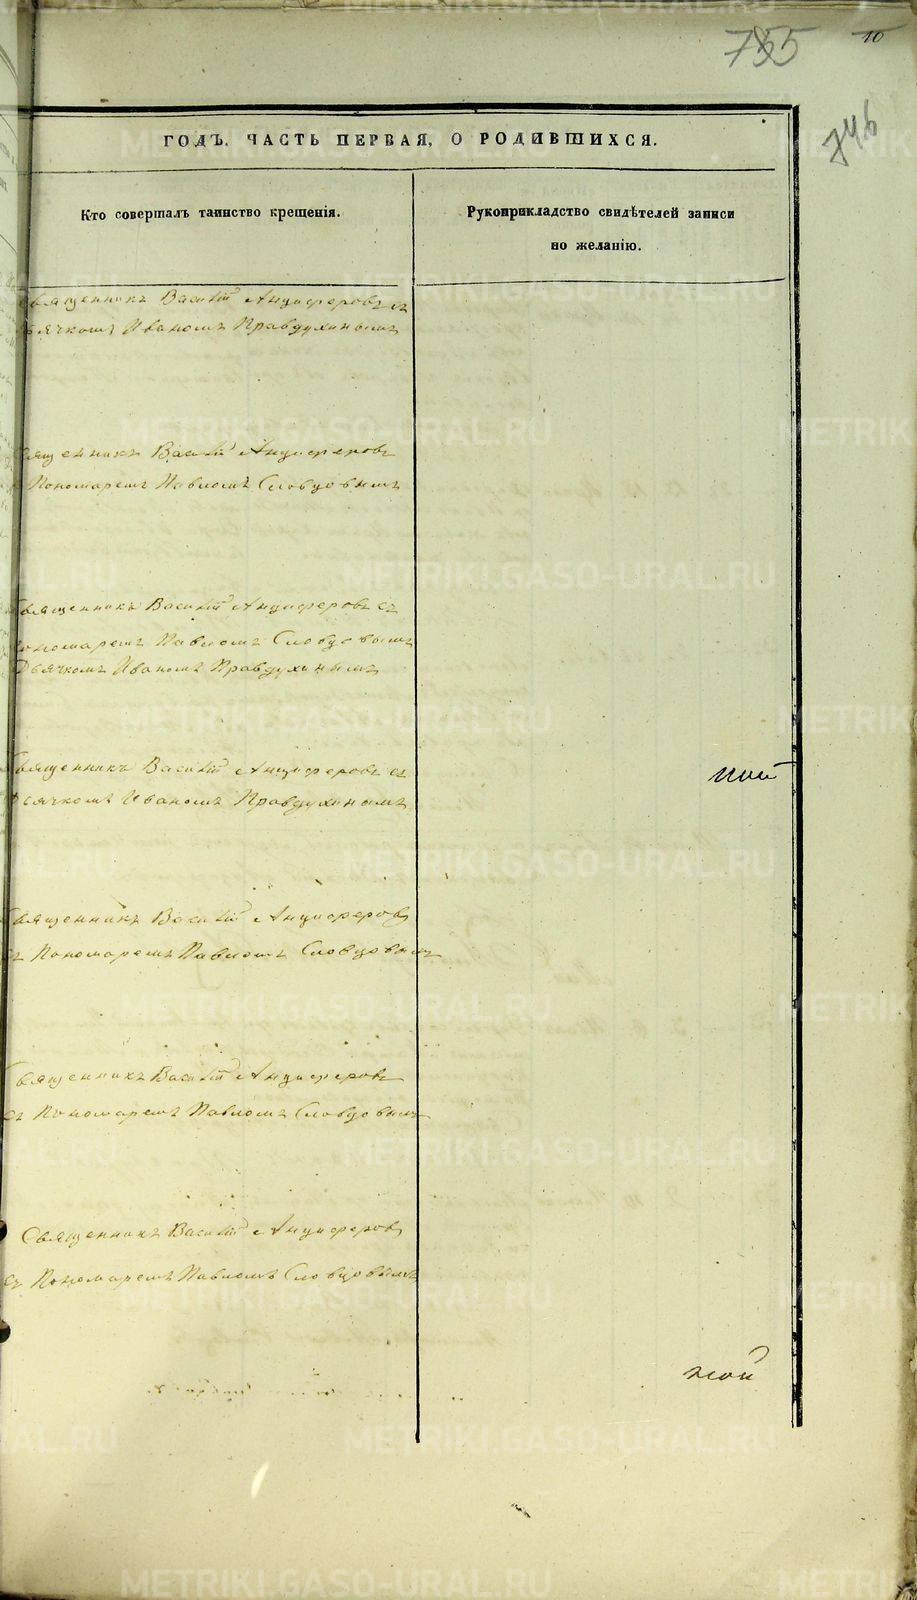 10
755
746
ГОДЪ. ЧАСТЬ ПЕРВАЯ, О РОДИВШИХСЯ.
Кто совершалъ таинство крещенія.
Рукоприкладство свидѣтелей записи
по желанію.
Священникъ Василій Анциферовъ съ
Дьячкомъ Иваномъ Правдухинымъ
Священникъ Василій Анциферовъ
Пономаремъ Павломъ Словцовымъ
Священникъ Василій Анциферовъ съ
Пономаремъ Павломъ Словцовымъ
Дьячкомъ Иваномъ Правдухинымъ
Священникъ Василій Анциферовъ съ
Дьячкомъ Иваномъ Правдухинымъ
Священникъ Василій Анциферовъ
съ Пономаремъ Павломъ Словцовымъ
Священникъ Василій Анциферовъ
съ Пономаремъ Павломъ Словцовымъ
Священникъ Василій Анциферовъ
съ Пономаремъ Павломъ Словцовымъ
METRIKI.GASO-URAL.RU